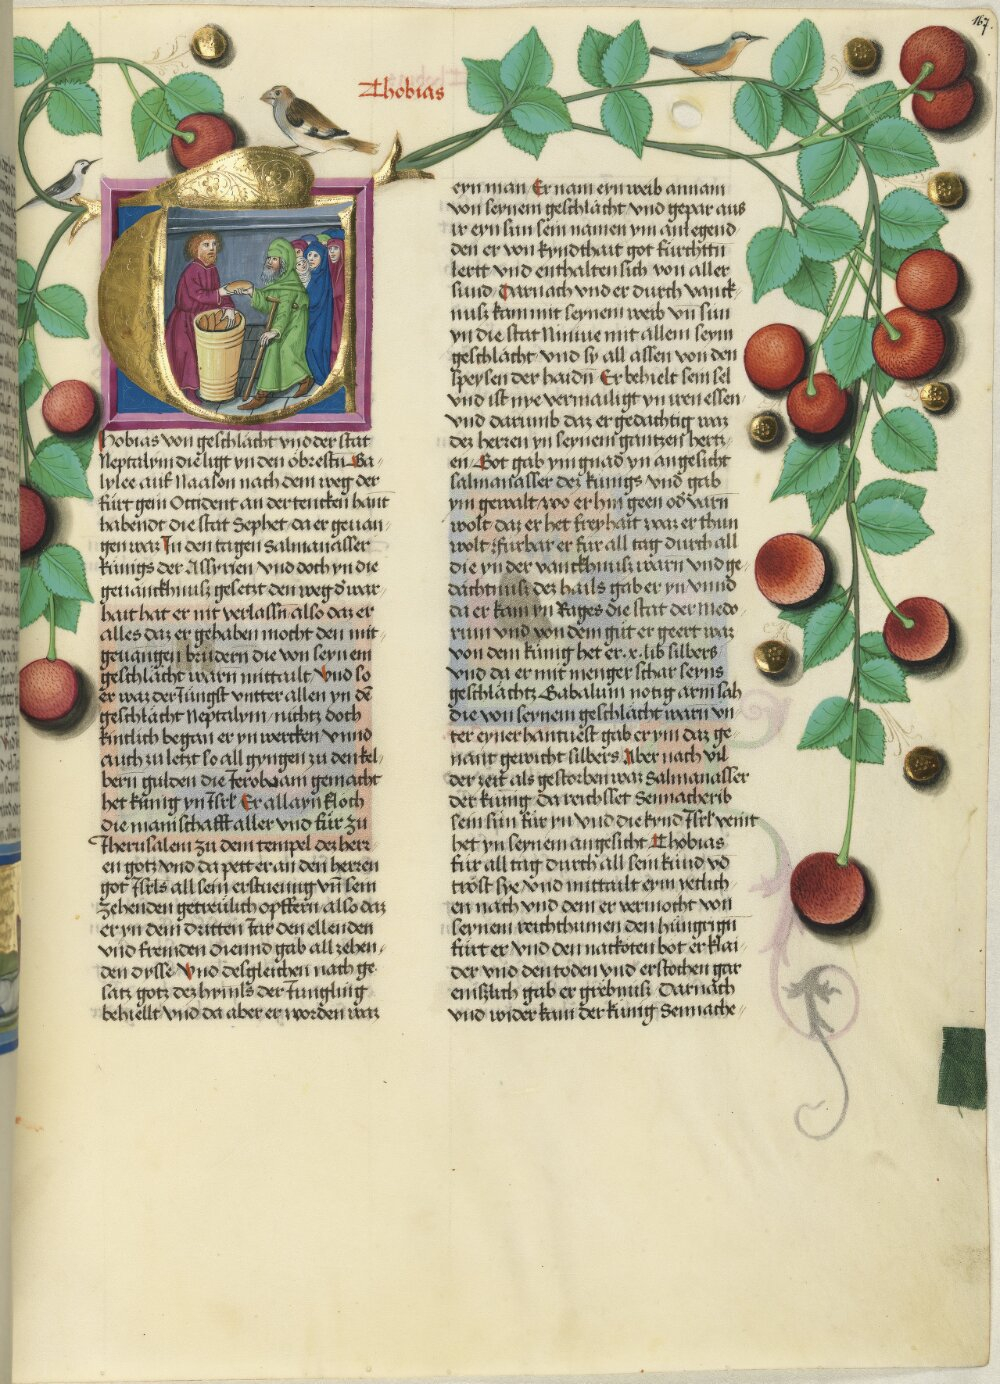 167
Thobias
Thobias von geschlächt vnd der stat
Neptalym die ligt yn den öbrestn Ga-
lylee auf Naason nach dem weg der
fürt gein Occident an der tencken hant
habendt die stat Sephet da er geuan-
gen war In den tagen Salmanasser
künigs der Assyrien vnd doch yn die
geuänckhnuß gesetzt den weg d war-
hait hat er nit verlassn also daz er
alles daz er gehaben mocht den mit-
geuangen brüdern die von seynem
geschlächt warn mittailt Vnd so
er waz der Jüngst vntter allen yn dē
geschlächt Neptalym nichtz doch
kintlich began er yn wercken vnnd
auch zu letzt so all gyngen zu den kel-
bern gulden die Jeroboam gemacht
het künig yn Jsrl Er allayn floch
die manschafft aller vnd für zu
Jherusalem zu dem tempel dez herr-
en gotz vnd da pett er an den herren
got Jsrls all sein erstuenng vn̄ sein
zehenden getreülich opffern also daz
er yn dem dritten Jar den ellenden
vnd fremden Dienn̄d gab all zehen-
den dysse Vnd desgleichen nach ge-
satz gotz dez hymls der Jüngling
behiellt vnd da aber er worden waz
eyn man Er nam eyn weib annam
von seynem geschlächt vnd gepar auß
ir eyn sun sein namen ym aufl̄egend
den er von kyndthait got fürchttn
lertt vnd enthalten sich von aller
sund Darnach vnd er durch vanck-
nuß kam mit seynem weib vn̄ sun
yn die stat Niniue mit allem seym
geschlächt vnd sy all assen von den
speysen der haidn Er behielt sein sel
vnd ist nye vermailigt yn iren essen
vnd darumb daz er gedächtig waz
dez herren yn seynem gantzen hertz-
en Got gab ym gnad yn angesicht
salmanasser dez künigs vnd gab
ym gewalt wo er hin geen od varn
wolt daz er het freyhait waz er thun
wolt Fürbar er für all tag durch all
die yn der vanckhnuß warn vnd ge-
dächtnuß dez hails gab er yn vnnd
da er kam yn Rages die stat der Medo-
rum vnd von dem güt er geert waz
von dem künig het er .x. lib silbers
vnd da er mit menger schar seyns
geschlächtz Gabalum notig arm sah
die von seynem geschlächt warn vn-
ter eyner hantuest gab er ym daz ge-
nant gewicht silbers Aber nach vil
der zeit als gestorben waz Salmanasser
der künig Da reichsset Sennacherib
sein sun für yn Vnd die kynd Jsrl veint
het yn seynem angesicht Thobias
für all tag durch all sein künd vn̄
tröst sye vnd mittailt erm yetlich-
en nach vnd dem er vermocht von
seynem reichthumen den hüngrign
fürt er vnd den nackoten bot er klai-
der vnd den toden vnd erstochen gar
emßlich gab er grebnuß Darnach
vnd wider kam der künig Sennache-